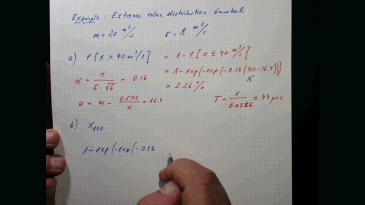 Example: Extreme value distribution Gumbel
m = 20 m³/s σ = 8 m³/s
a) P[X > 40 m³/s] = 1 - P[X ≤ 40 m³/s]
= 1 - exp(-exp(-0.16(40-16.4)))
α = π / √6·σ = 0.16
= 2.26%
u = m - 0.577/α = 16.4
T = 1/0.0226 = 44 yrs
b) X₁₀₀
1 - exp(-exp(-0.16